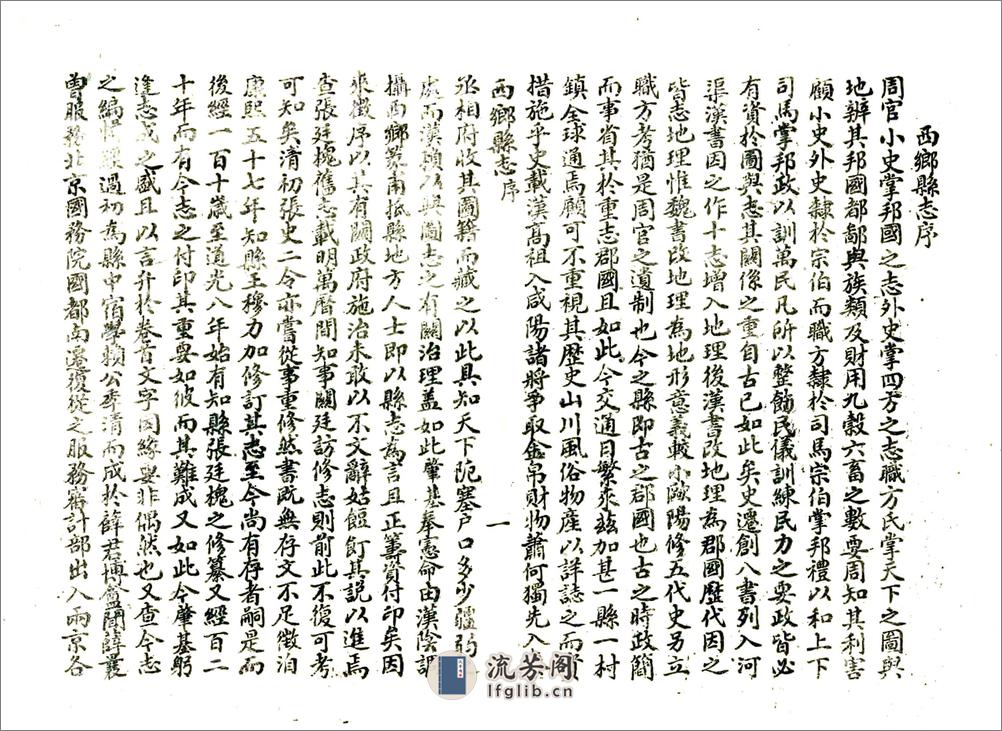 西鄉縣志序
周官小史掌邦國之志外史掌四方之志職方氏掌天下之圖與
地辨其邦國都鄙與族類及財用九穀六畜之數要周知其利害
顧小史外史隸於宗伯而職方隸於司馬宗伯掌邦禮以和上下
司馬掌邦政以訓萬民凡所以整飭民儀訓練民力之要政皆必
有資於圖與志其關係之重自古已如此矣史遷創八書列入河
渠漢書因之作十志增入地理後漢書改地理為郡國歷代因之
皆志地理惟魏書改地理為地形意義較小歐陽修五代史另立
職方考猶是周官之遺制也今之縣即古之郡國也古之時政簡
而事省其於重志郡國且如此今交通日繁來茲加甚一縣一村
鎮全球通焉顧可不重視其歷史山川風俗物產以詳誌之而資
措施乎史載漢高祖入咸陽諸將爭取金帛財物蕭何獨先入
西鄉縣志 序
一
丞相府收其圖籍而藏之以此具知天下阨塞戶口多少疆弱
處而漢賴以興圖志之有關治理蓋如此肇基奉憲命由漢陰調
攝西鄉篆甫抵縣地方人士即以縣志為言且正籌資付印矣因
來徵序以其有關政府施治未敢以不文辭姑餖飣其說以進焉
查張廷槐舊志載明萬曆間知事關廷訪修志則前此不復可考
可知矣清初張史二令亦嘗從事重修然書既無存文不足徵洎
康熙五十七年知縣王穆力加修訂其志至今尚有存者嗣是而
後經一百十歲至道光八年始有知縣張廷槐之修纂又經百二
十年而有今志之付印其重要如彼而其難成又如此今肇基躬
逢志成之盛且以言弁於卷首文字因緣要非偶然也又查今志
之編惟經過初為縣中宿學賴公季清而成於薛君博盦聞薛曩
曾服務北京國務院國都南遷復從之服務審計部出入兩京各
流芳阁
lfglib.cn